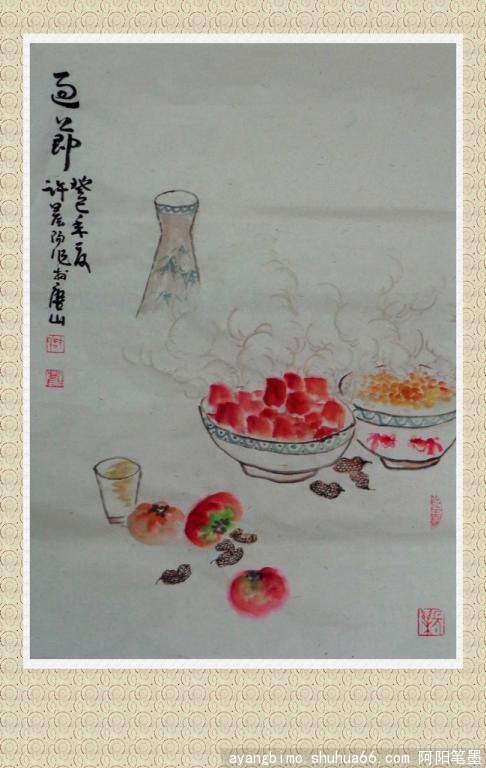 過節
癸巳年夏
許晨陽作於唐山
ayangbimo.shuhua66.com 阿阳笔墨